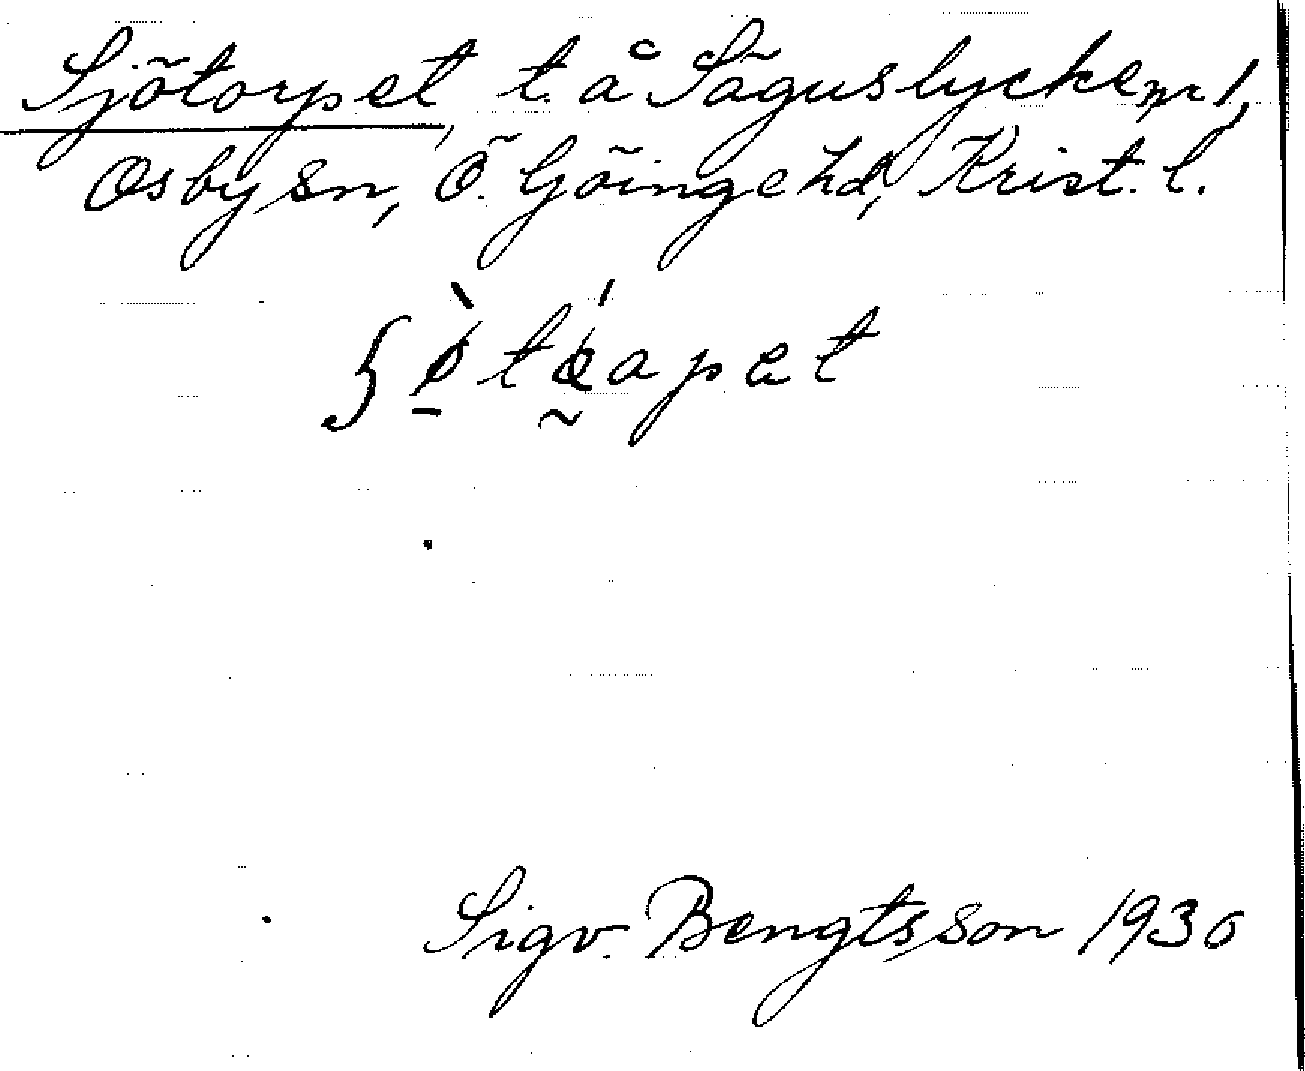 Sjötorpet, t. å Såguslycke nr 1,
Osby sn, Ö. Göinge hd, Krist. l.
Sigv. Bengtsson 1930